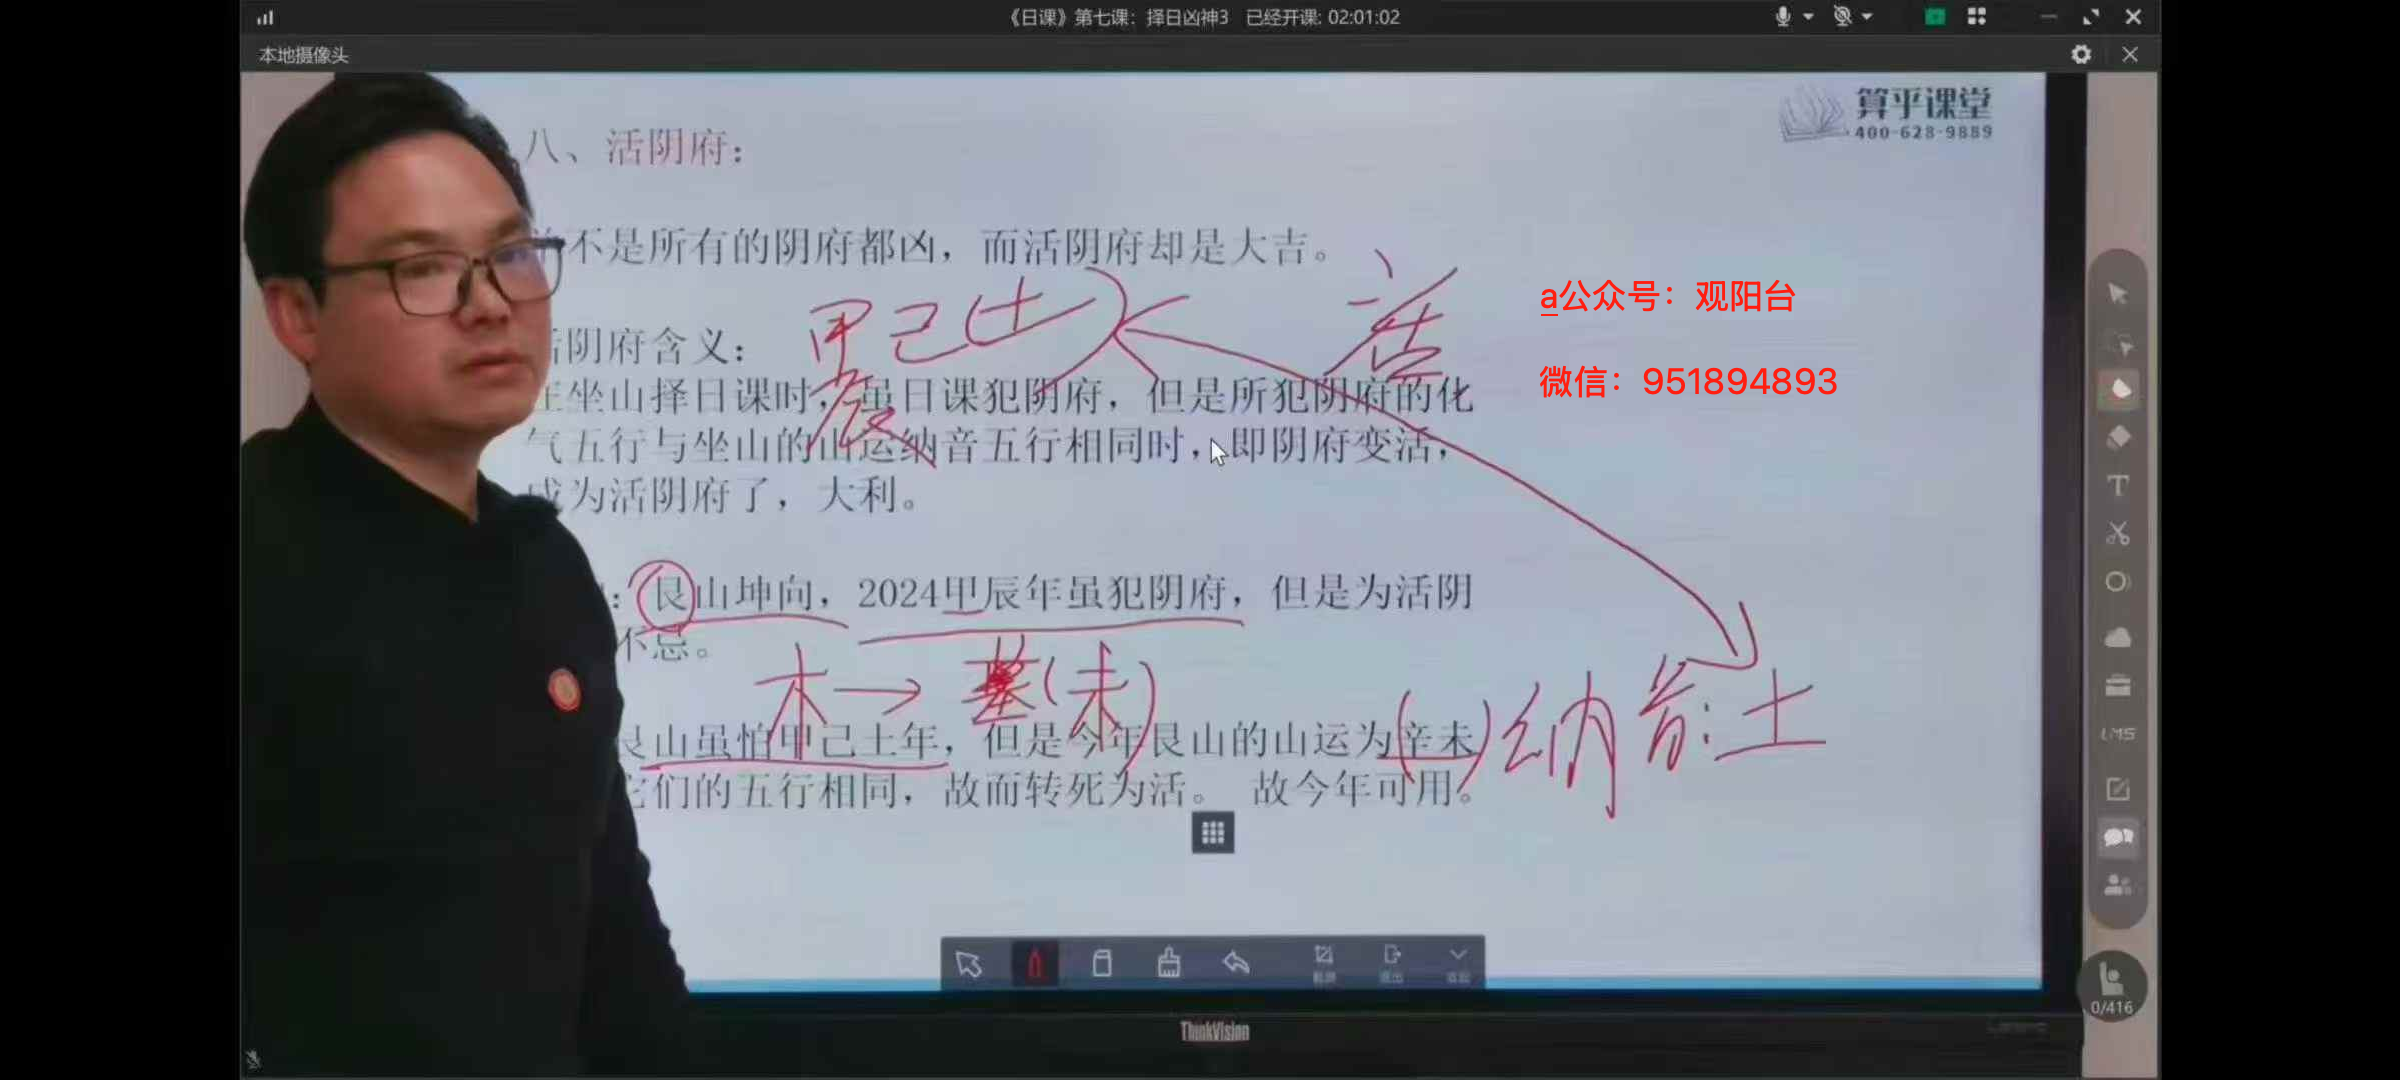 《日课》第七课：择日凶神3 已经开课: 02:01:02
本地摄像头
算乎课堂
400-628-9889
八、活阴府：
不是所有的阴府都凶，而活阴府却是大吉。
a公众号：观阳台
甲己(土) 活
阴府含义：
辰
微信：951894893
坐山择日课时，虽日课犯阴府，但是所犯阴府的化
气五行与坐山的山运纳音五行相同时，即阴府变活，
成为活阴府了，大利。
：艮山坤向，2024甲辰年虽犯阴府，但是为活阴
不忌。
木→墓(未)
纳音:土
艮山虽怕甲己土年，但是今年艮山的山运为辛未
它们的五行相同，故而转死为活。 故今年可用。
LMS
截屏 退出 收起
0/416
ThinkVision